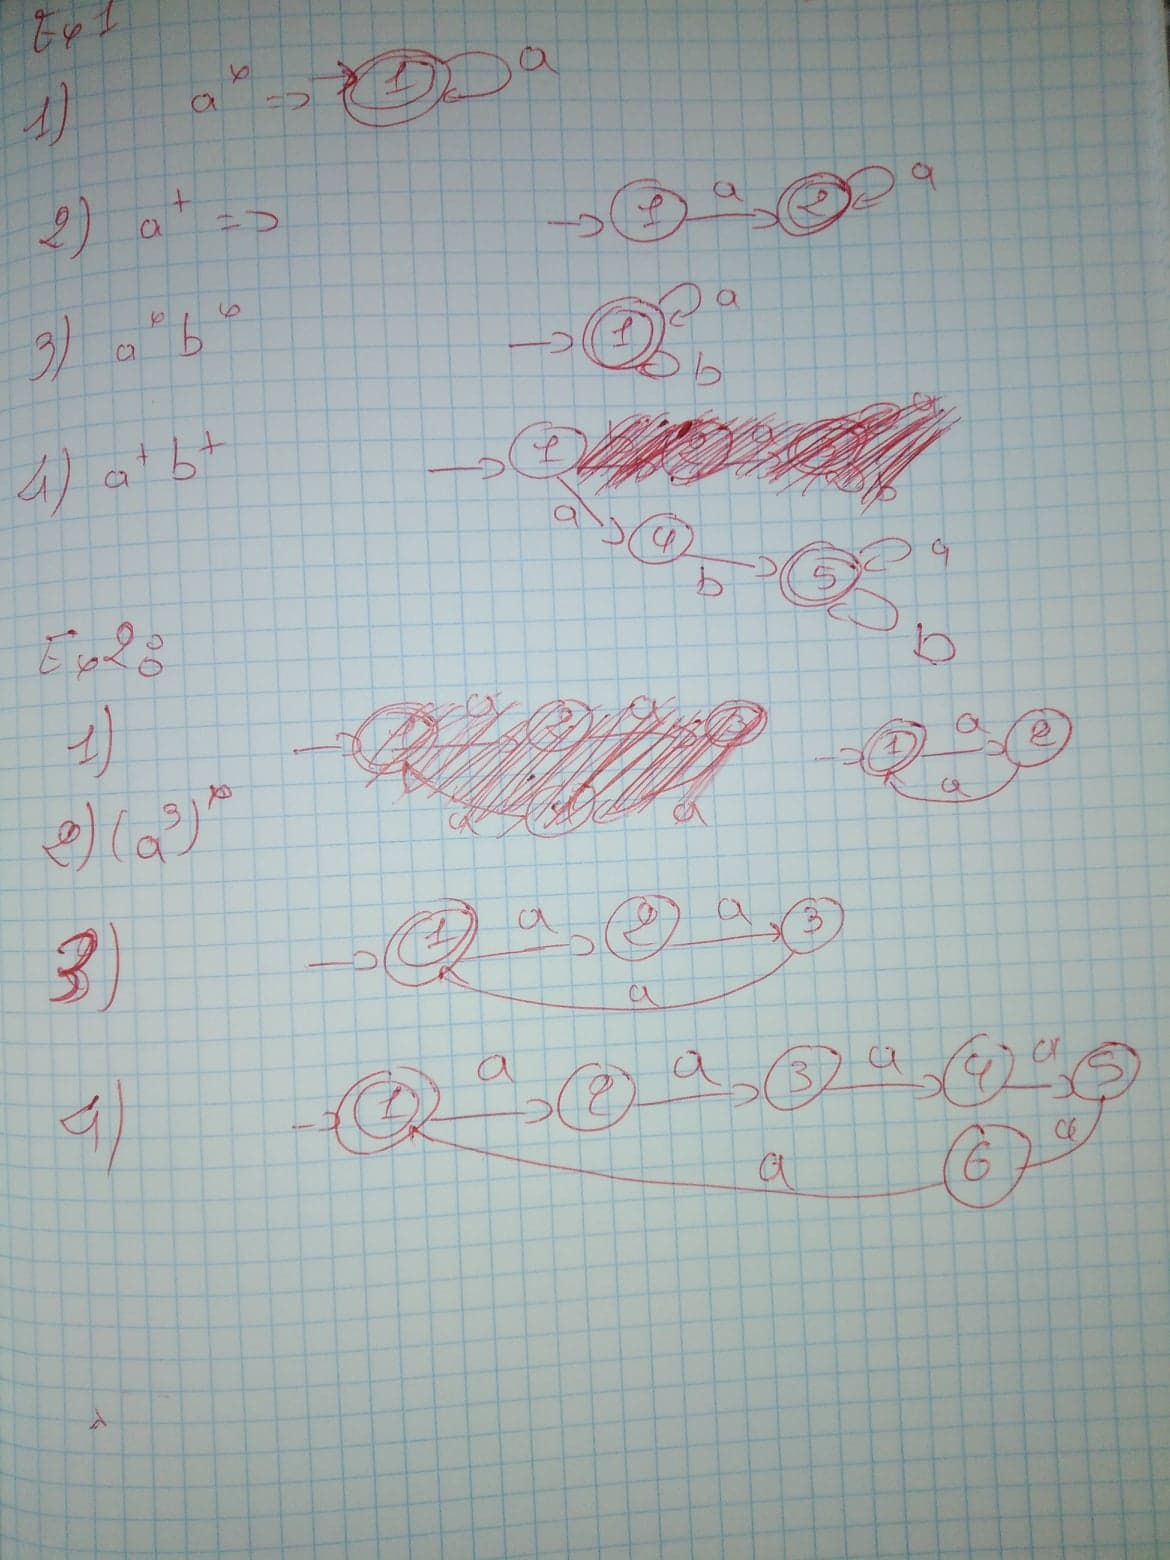 Ex 1
1) a* => → 1 a
2) a+ => → 1 a 2 a
3) a* b* → 1 a b
4) a+ b+ → 1
a 4 b 5 a b
Ex 2:
1) → 1 a 2 a
2) (a3)*
3) → 1 a 2 a 3 a
4) → 1 a 2 a 3 a 4 a 5 a 6 a